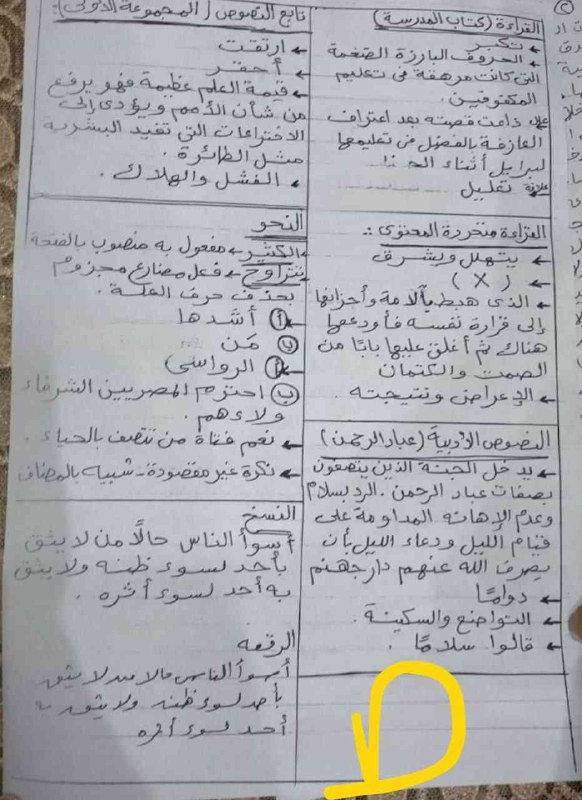 القراءة (كتاب المدرسة)
← تكبر
← الحروف البارزة الضخمة
التى كانت مرهقة فى تعليم
المكفوفين.
ذاعت قصته بعد اعتراف
العازفة بالفضل فى تعليمها
لبرايل أثناء
علاقة تعليل
القراءة متحررة المحتوى :-
← يتهلل ويشرق
← ( X )
← الذى هبط بآلامة وأحزانها
إلى قرارة نفسه فأودعها
هناك ثم أغلق عليها بابًا من
الصمت والكتمان
← الإعراض ونتيجته
النصوص الأدبية (عباد الرحمن)
← يدخل الجنة الذين يتصفون
بصفات عباد الرحمن. الرد بسلام
وعدم الإهانه المداومة على
قيام الليل ودعاء الليل بأن
يصرف الله عنهم دار جهنم
← دوامًا
← التواضع والسكينة.
← قالوا سلامًا.
تابع النصوص (المجموعة الأولى):
← ارتقت
← أحقر
• قيمة العلم عظيمة فهو يرفع
من شأن الأمم ويؤدى إلى
الاختراعات التى تفيد البشرية
مثل الطائرة.
• الفشل والهلاك.
النحو
الكثير ← مفعول به منصوب بالفتحة
← فعل مضارع مجزوم
بحذف حرف العلة.
← أ أشدها
ب مَن
← أ الرواسى
ب احترم المصريين الشرفاء
ولاءهم.
← نعم فتاة من تتصف بالحياء.
← نكرة غير مقصودة - شبيه بالمضاف
النسخ
أسوأ الناس حالًا من لا يثق
بأحد لسوء ظنه ولا يثق
به أحد لسوء أثره.
الرقعه
أسوأ الناس حالا من لا يثق
بأحد لسوء ظنه ولا يثق به
أحد لسوء أثره